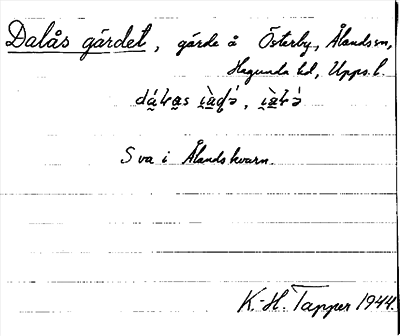 Dalås gärdet, gärde å Österby, Ålands sn,
Hagunda hd, Upps. l.
S va i Ålands kvarn.
K.-H. Tapper 1944.